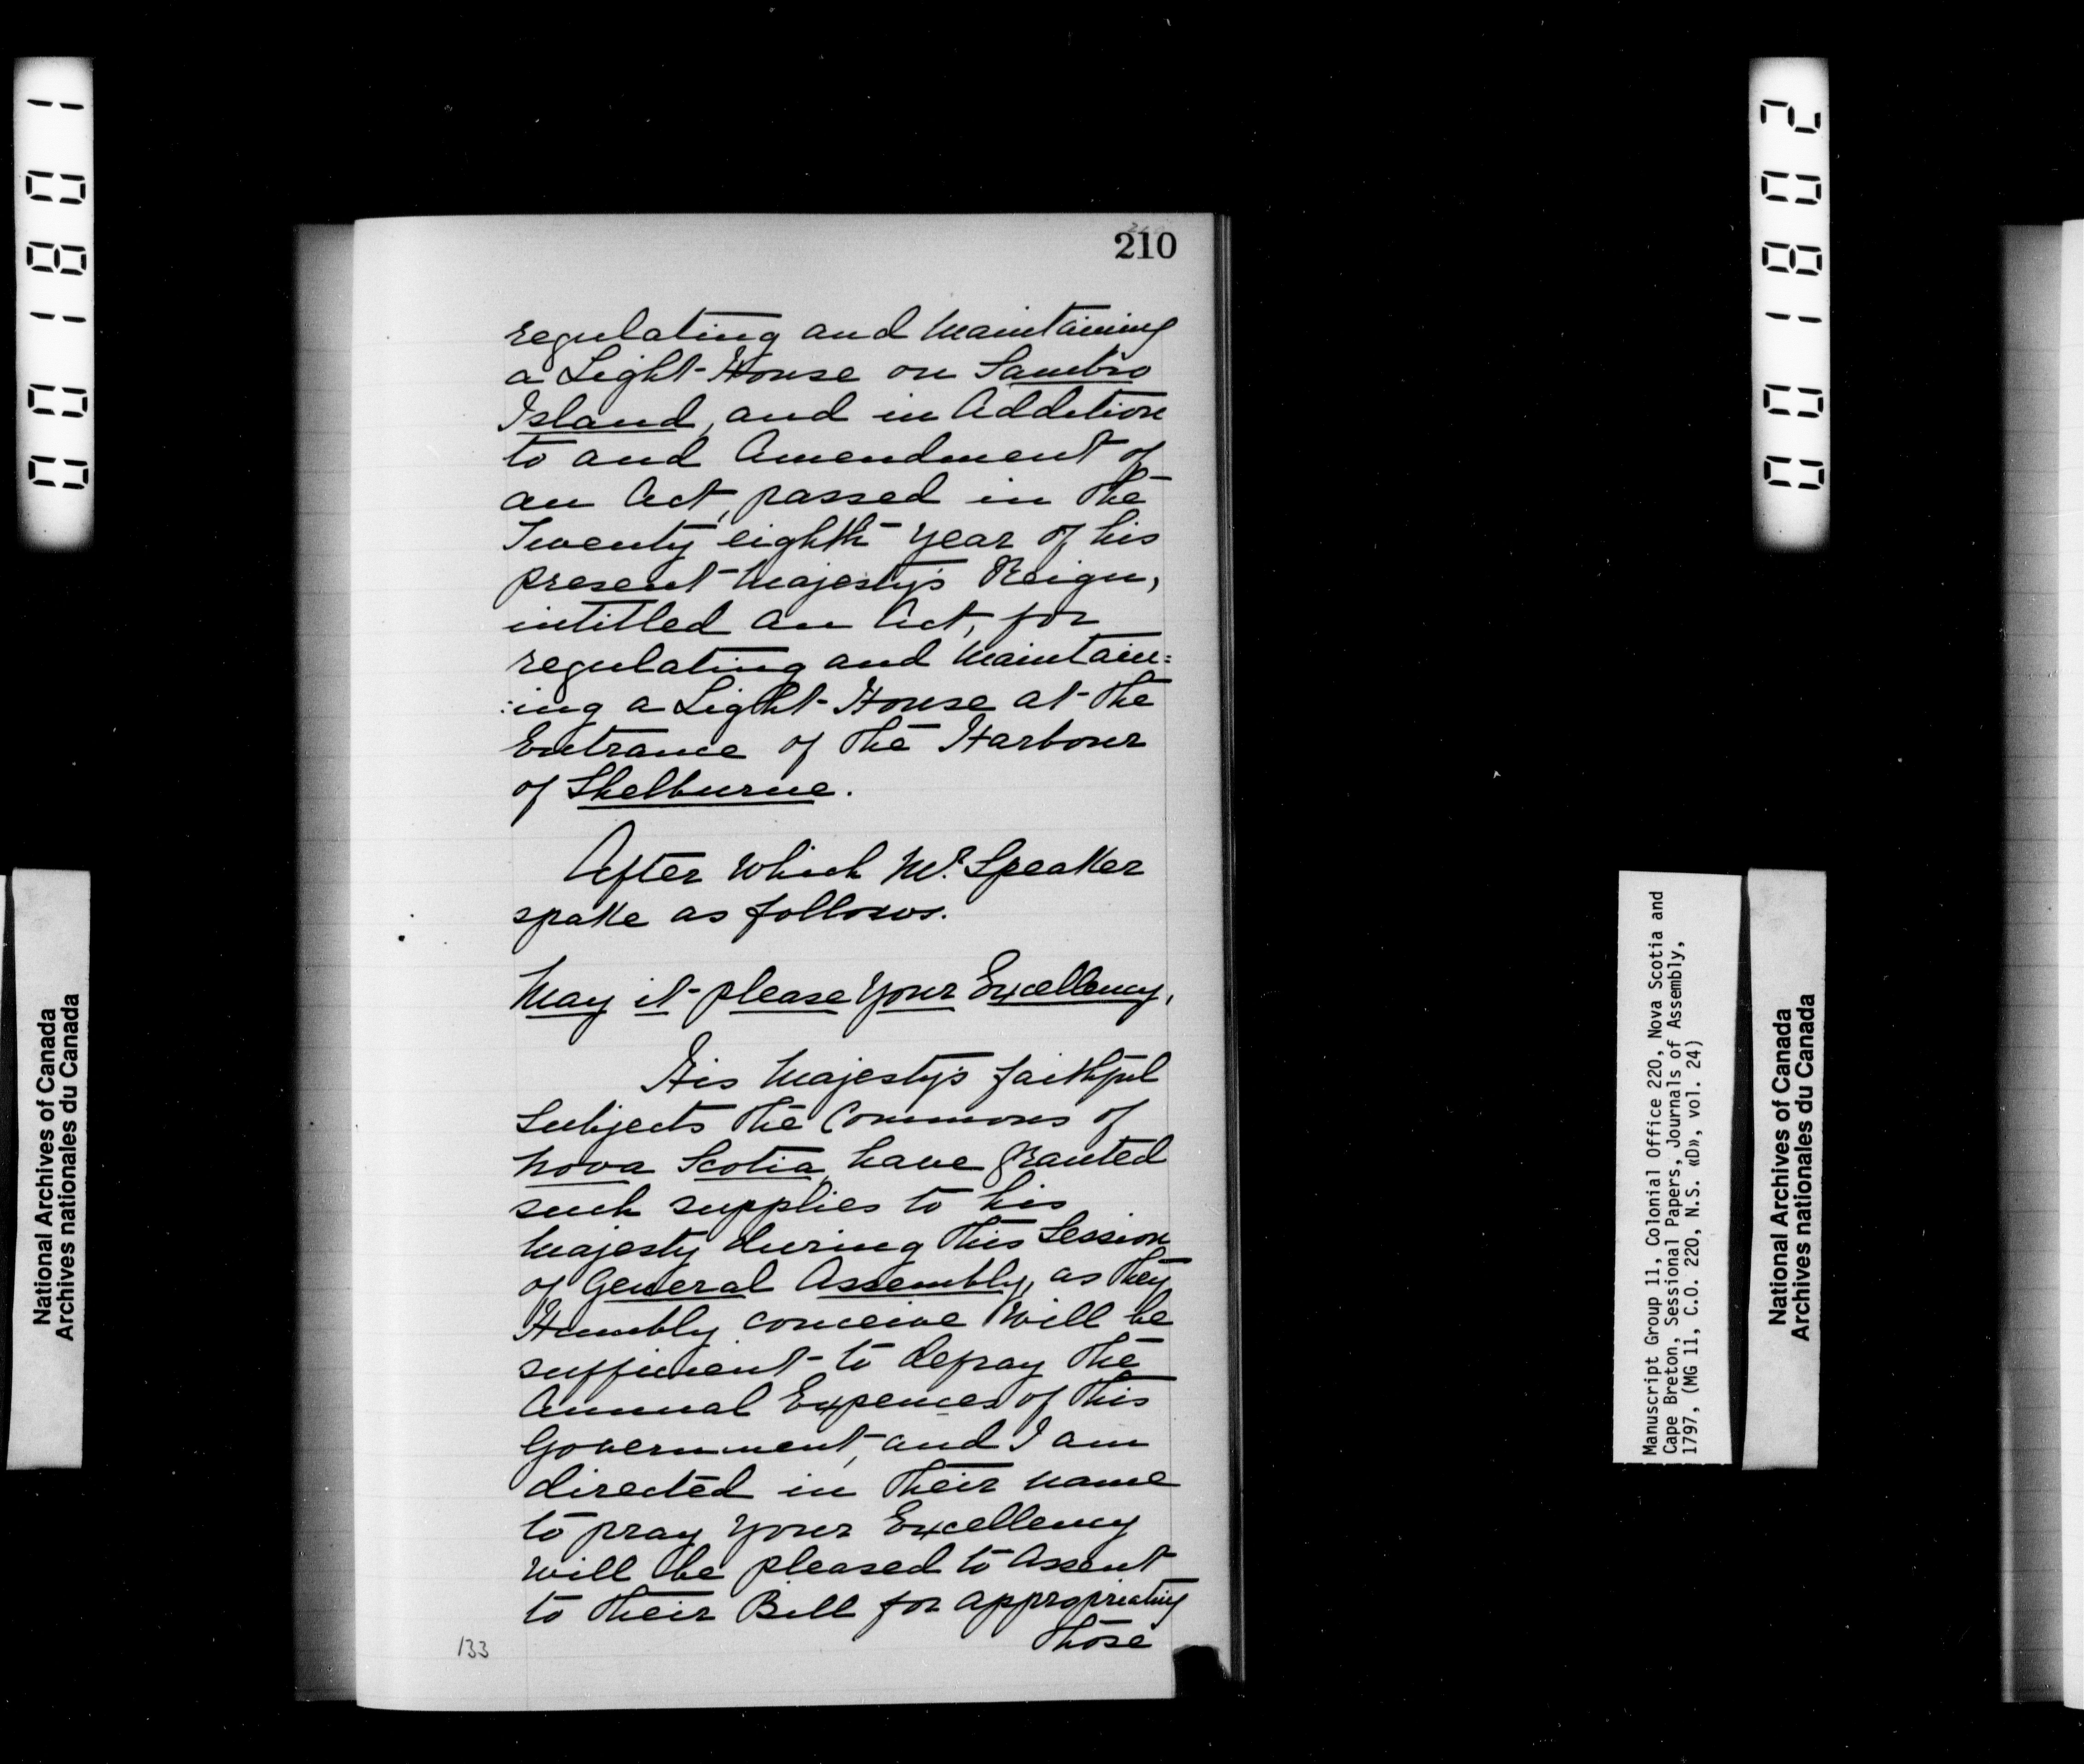 001801
National Archives of Canada
Archives nationales du Canada
210
regulating and Maintaining
a Light-House on Sambro
Island, and in Addition
to and Amendment of
an Act, passed in the
Twenty eighth year of his
present Majesty's Reign,
intitled an Act, for
regulating and Maintain=
:ing a Light-House at the
Entrance of the Harbour
of Shelburne.
After which Mr. Speaker
spake as follows.
May it please your Excellency,
His Majesty's faithful
Subjects the Commons of
Nova Scotia, have granted
such supplies to his
Majesty during this Session
of General Assembly, as they
Humbly conceive will be
sufficient to defray the
Annual Expences of this
Government, and I am
directed in their name
to pray your Excellency
will be pleased to Assent
to their Bill for appropriating
those
133
001802
Manuscript Group 11, Colonial Office 220, Nova Scotia and
Cape Breton, Sessional Papers, Journals of Assembly,
1797, (MG 11, C.O. 220, N.S. «D», vol. 24)
National Archives of Canada
Archives nationales du Canada